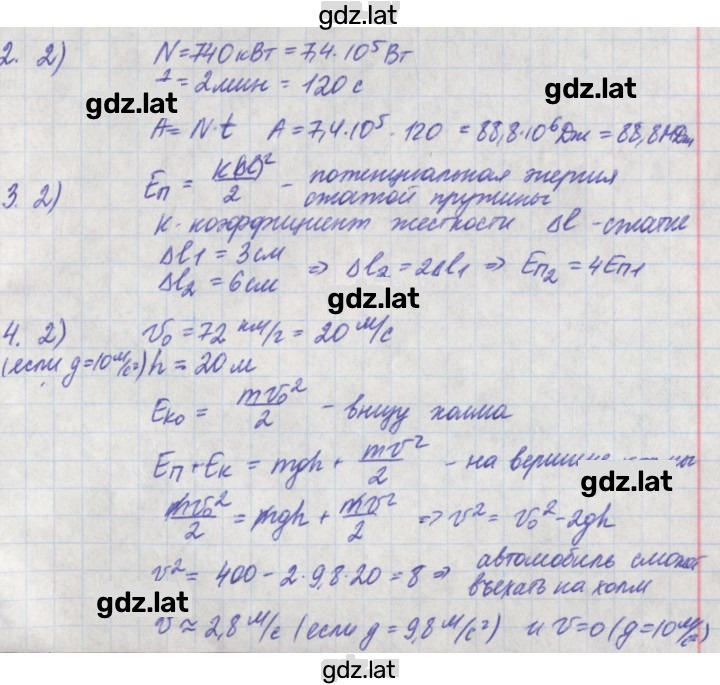 gdz.lat
2. 2) N = 740 кВт = 7,4 · 10⁵ Вт
= 2 мин = 120 с
gdz.lat gdz.lat
A = N·t A = 7,4·10⁵ · 120 = 88,8·10⁶ Дж = 88,8 МДж
3. 2) Eп = k(Δl)²/2 - потенциальная энергия
сжатой пружины
k - коэффициент жесткости Δl - сжатие
Δl1 = 3 см
Δl2 = 6 см ⇒ Δl2 = 2Δl1 ⇒ Eп2 = 4Eп1
gdz.lat
4. 2) v₀ = 72 км/г = 20 м/с
(если g=10 м/с²) h = 20 м
Eко = mv₀²/2 - внизу холма
Eп + Eк = mgh + mv²/2 - на вершине
gdz.lat
mv₀²/2 = mgh + mv²/2 ⇒ v² = v₀² - 2gh
v² = 400 - 2·9,8·20 = 8 ⇒ автомобиль сможет
въехать на холм
gdz.lat
v ≈ 2,8 м/с (если g = 9,8 м/с²) и v=0 (g=10 м/с²)
gdz.lat